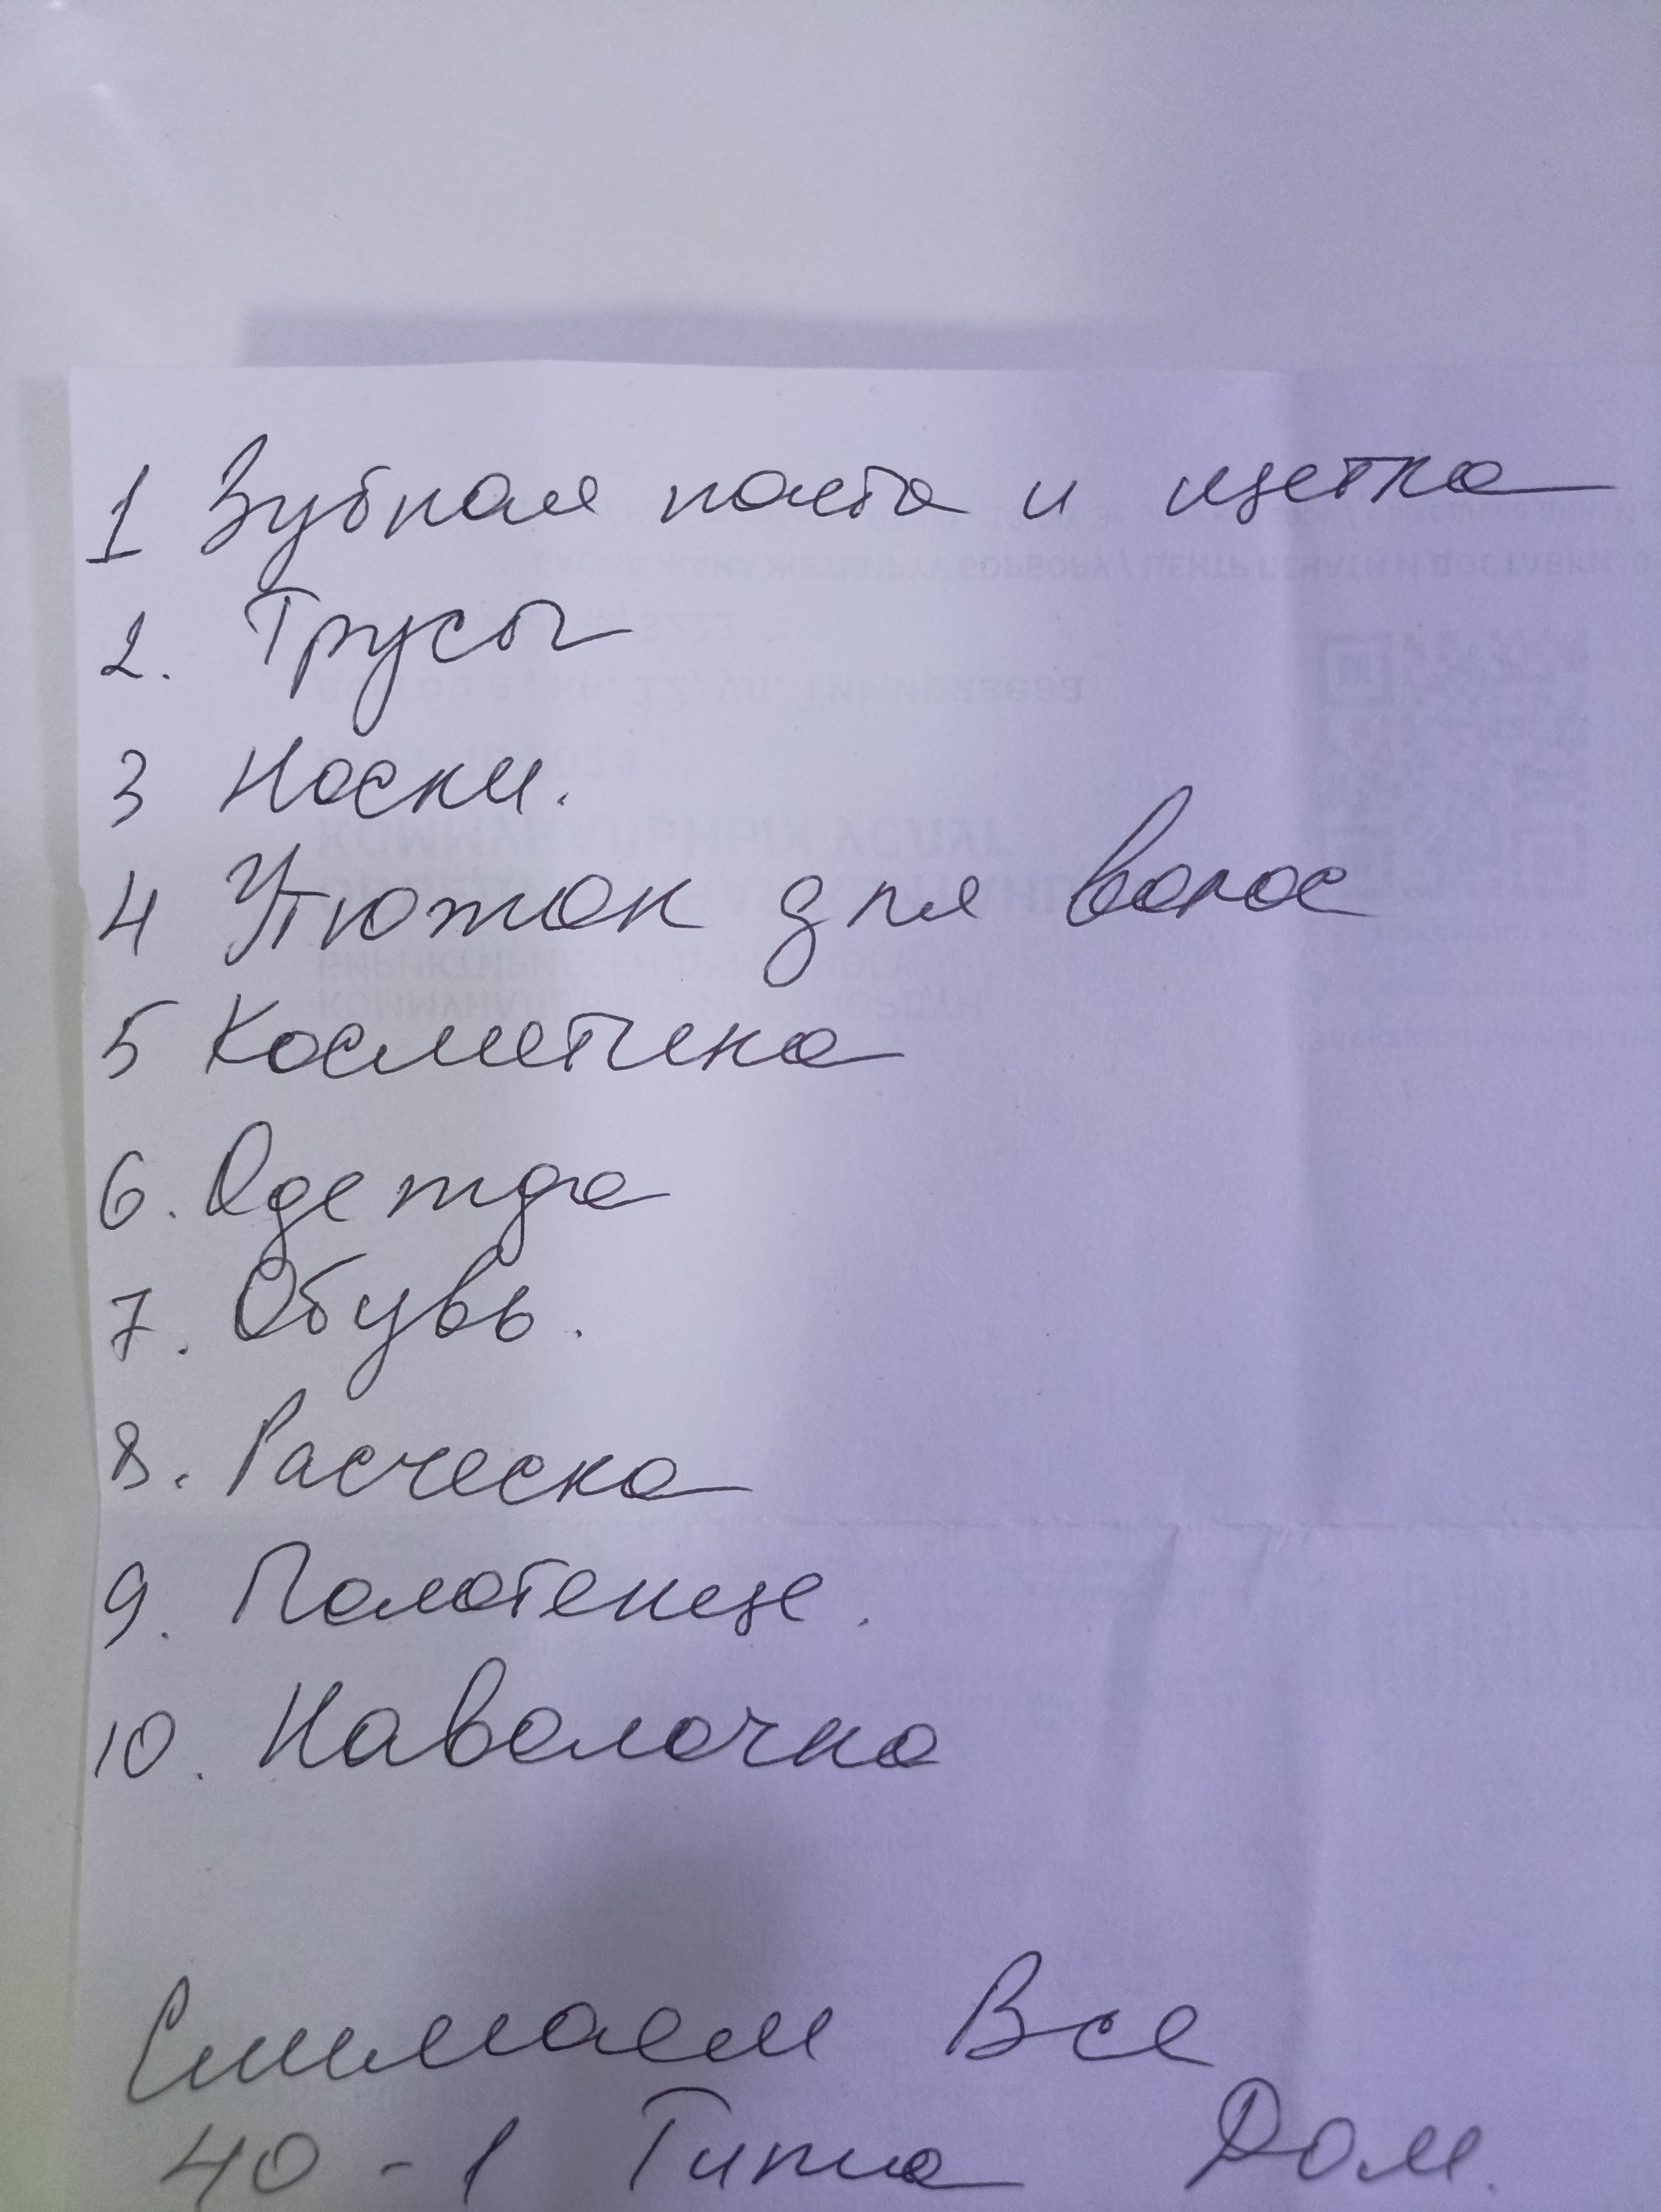 1 Зубная паста и щетка
2. Трусы
3 Носки.
4 Утюжок для волос
5 Косметика
6. Одежда
7. Обувь.
8. Расческа
9. Полотенце.
10. Наволочка
Снимаем Все
40 - 1 Типа Дом.